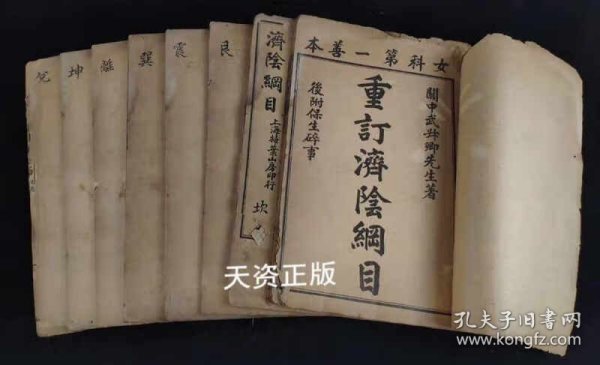 女科第一善本
關中武叔卿先生著
重訂濟陰綱目
後附保生碎事
濟陰綱目
上海埽葉山房印行
坎
艮
震
巽
離
坤
兌
天资正版
孔夫子旧书网
www.kongfz.com